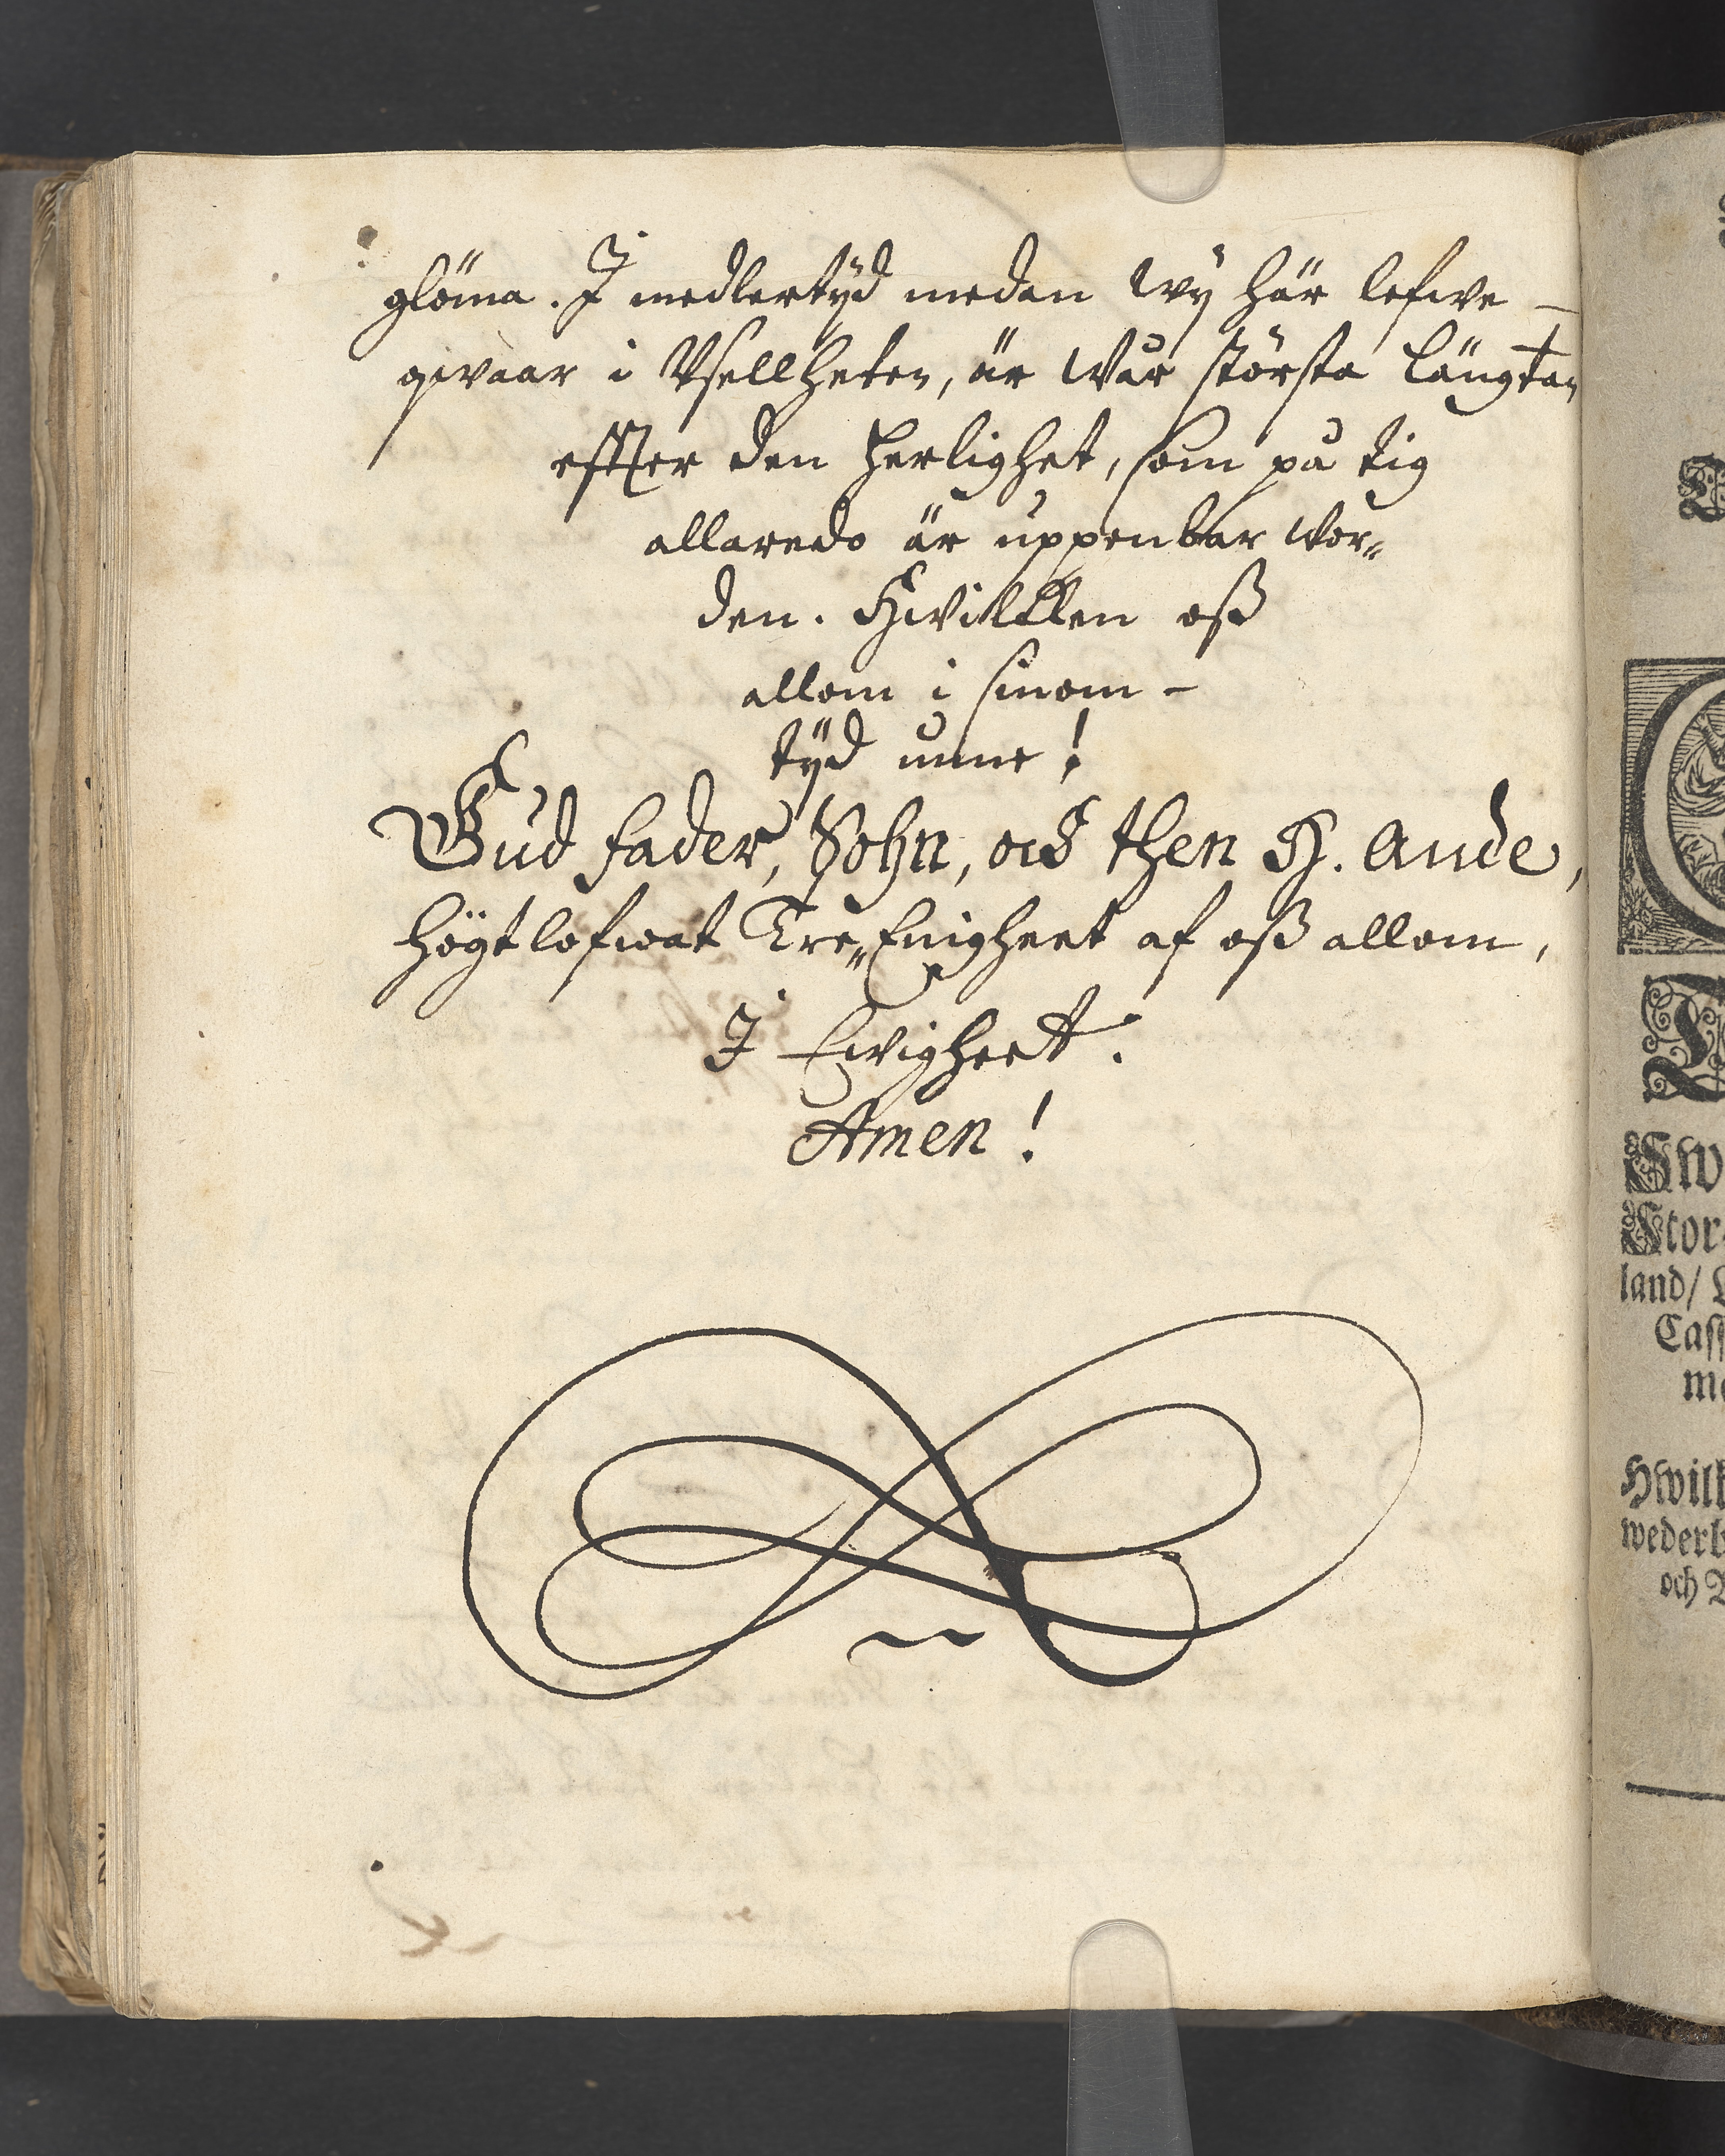 glöma. I medlertÿd medan wÿ här lefwe –
qwaar i Vsellheten, är Wår största längtan
effter den Herlighet, som på tig
allaredo är uppenbar wor„
den. Hwilcken oß
allom i sinom –
tÿd unne!
Gud fader, Sohn, och then H. Ande,
Högtlofwat Tre„Enigheet af oß allom,
I Ewigheet.
Amen!
Sw
Stor-
land/
Cass
me
Hwilk
wederb
och